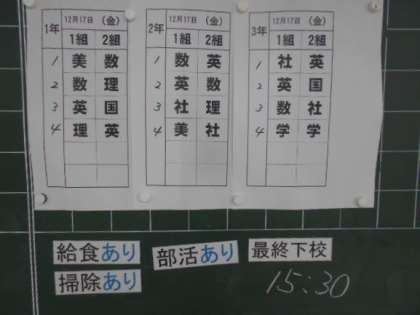 1年 12月17日 (金) 2年 12月17日 (金) 3年 12月17日 (金)
1組 2組 1組 2組 1組 2組
1 美 数 1 数 英 1 社 英
2 数 理 2 英 数 2 英 国
3 英 国 3 社 理 3 数 社
4 理 英 4 美 社 4 学 学
給食あり 部活あり 最終下校
掃除あり 15:30